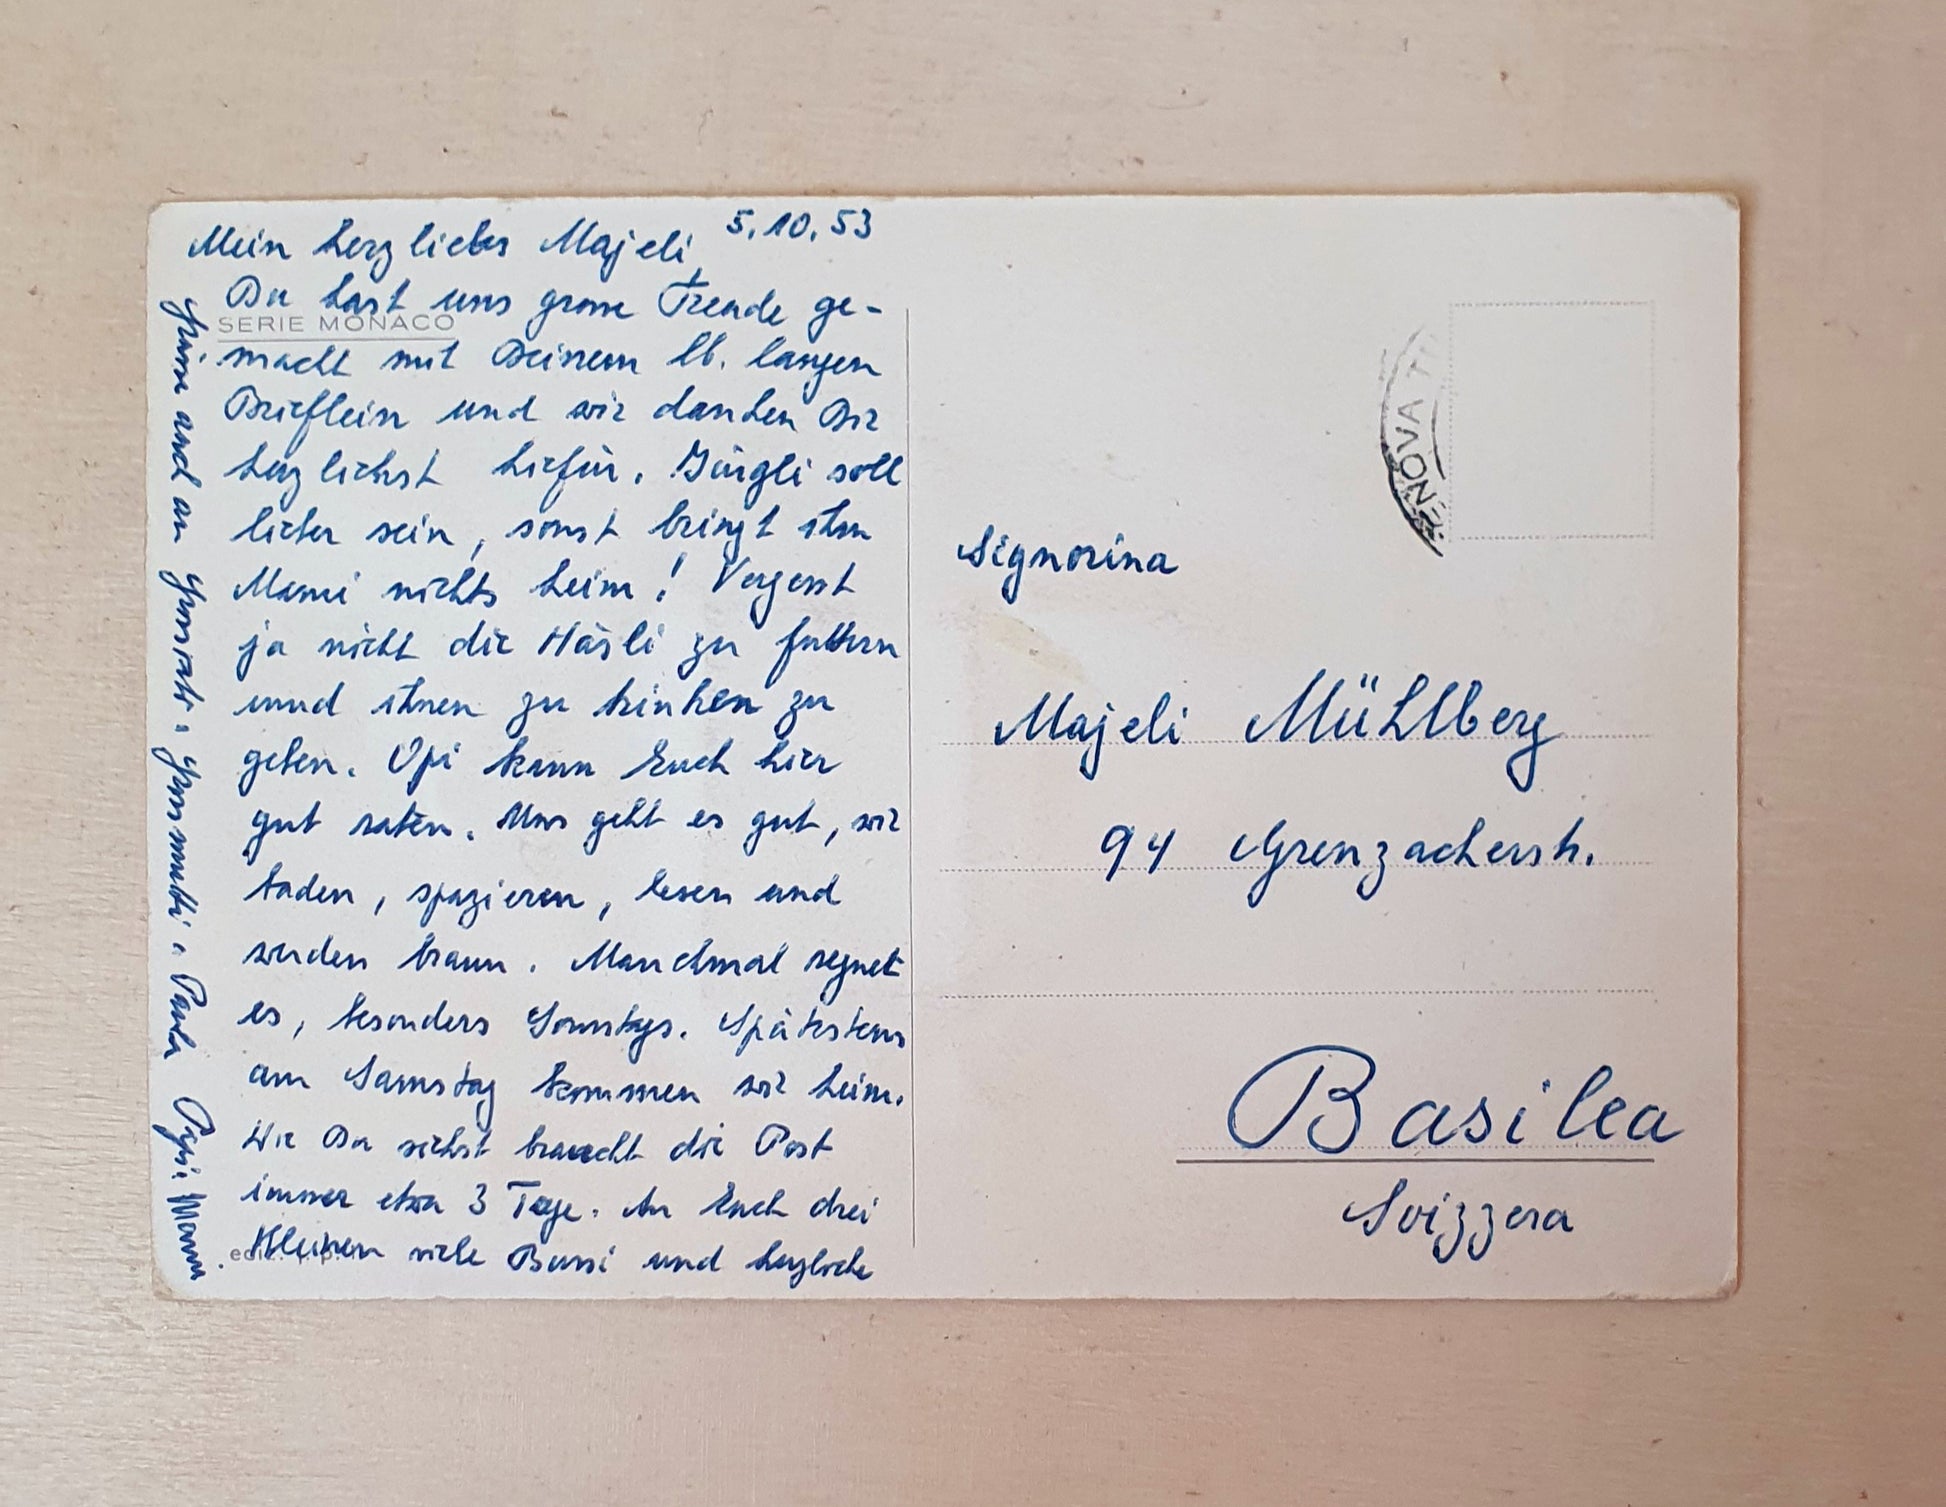 5.10.53
Mein herzliebes Majeli
Du hast uns grosse Freude ge-
SERIE MONACO
macht mit Deinem lb. langen
Brieflein und wir danken Dir
herzlichst hiefür. Jürgli soll
lieber sein, sonst bringt ihm
Mami nichts heim! Vergesst
ja nicht die Häsli zu futtern
und ihnen zu trinken zu
geben. Opi kann Euch hier
gut raten. Uns geht es gut, wir
baden, spazieren, lesen und
werden braun. Manchmal regnet
es, besonders Sonntags. Spätestens
am Samstag kommen wir heim.
Wie Du siehst braucht die Post
immer etwa 3 Tage. An Euch drei
Kleinen viele Bussi und herzliche
Grüsse auch an Grossmutti u. Paula Papi u. Mami
Signorina
Majeli Mühlberg
94 Grenzacherstr.
Basilea
Svizzera